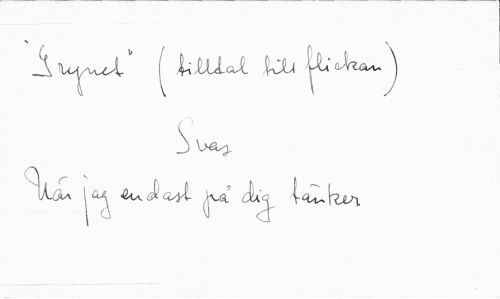 "Grynet" (tilltal till flickan)
Svar
När jag endast på dig tänker